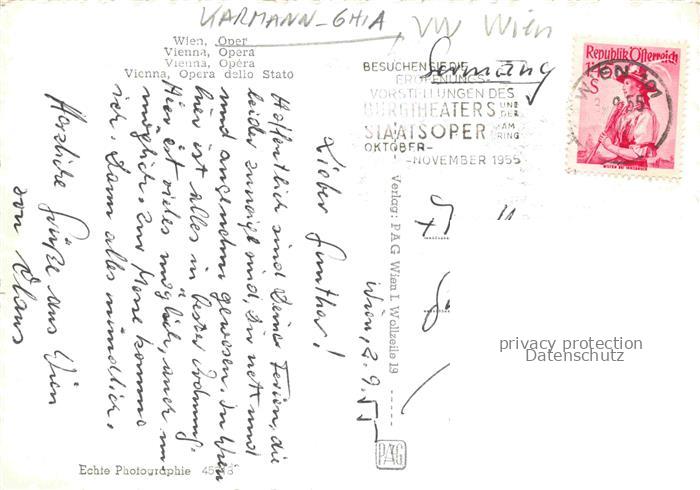 KARMANN-GHIA, VW Wien
Wien, Oper
Vienna, Opera
Vienna, Opéra
Vienna, Opera dello Stato
Germany
BESUCHEN SIE DIE
ERÖFFNUNGS-
VORSTELLUNGEN DES
BURGTHEATERS UND DER
STAATSOPER AM RING
OKTOBER-
-NOVEMBER 1955
Republik Österreich
WIEN 101
9.55
Wien, 2.9.55
Lieber Gunther!
Hoffentlich sind Deine Ferien, die
leider zu Ende sind, Dir nett und
und angenehm gewesen. In Wien
hier ist alles in bester Ordnung.
Hier ist vieles möglich, auch
möglich. Zur Messe komme
ich. Dann alles mündlich.
Herzliche Grüße aus Wien
von Klaus
Verlag: PAG Wien I, Wollzeile 19
PAG
Echte Photographie
privacy protection
Datenschutz